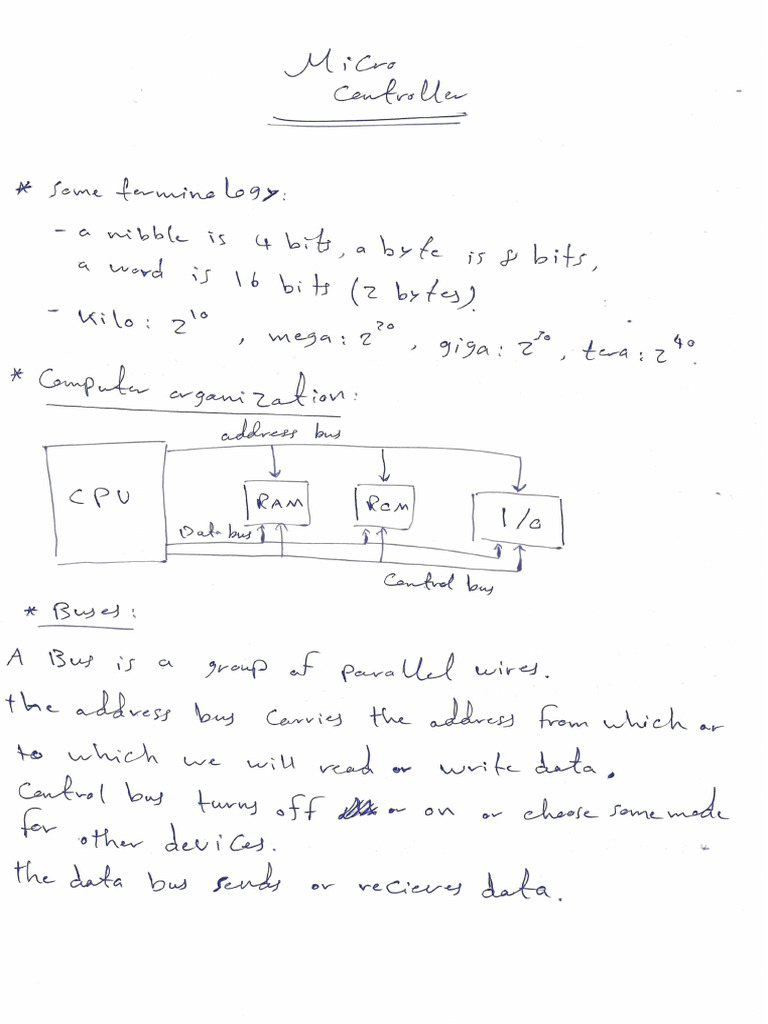 Micro
Controller
* Some terminology:
- a nibble is 4 bits, a byte is 8 bits,
a word is 16 bits (2 bytes).
- Kilo: 2^10, mega: 2^20, giga: 2^30, tera: 2^40.
* Computer organization:
address bus
CPU
RAM
ROM
I/O
Data bus
Control bus
* Buses:
A Bus is a group of parallel wires.
the address bus carries the address from which or
to which we will read or write data.
Control bus turns off or on or choose some mode
for other devices.
the data bus sends or recieves data.